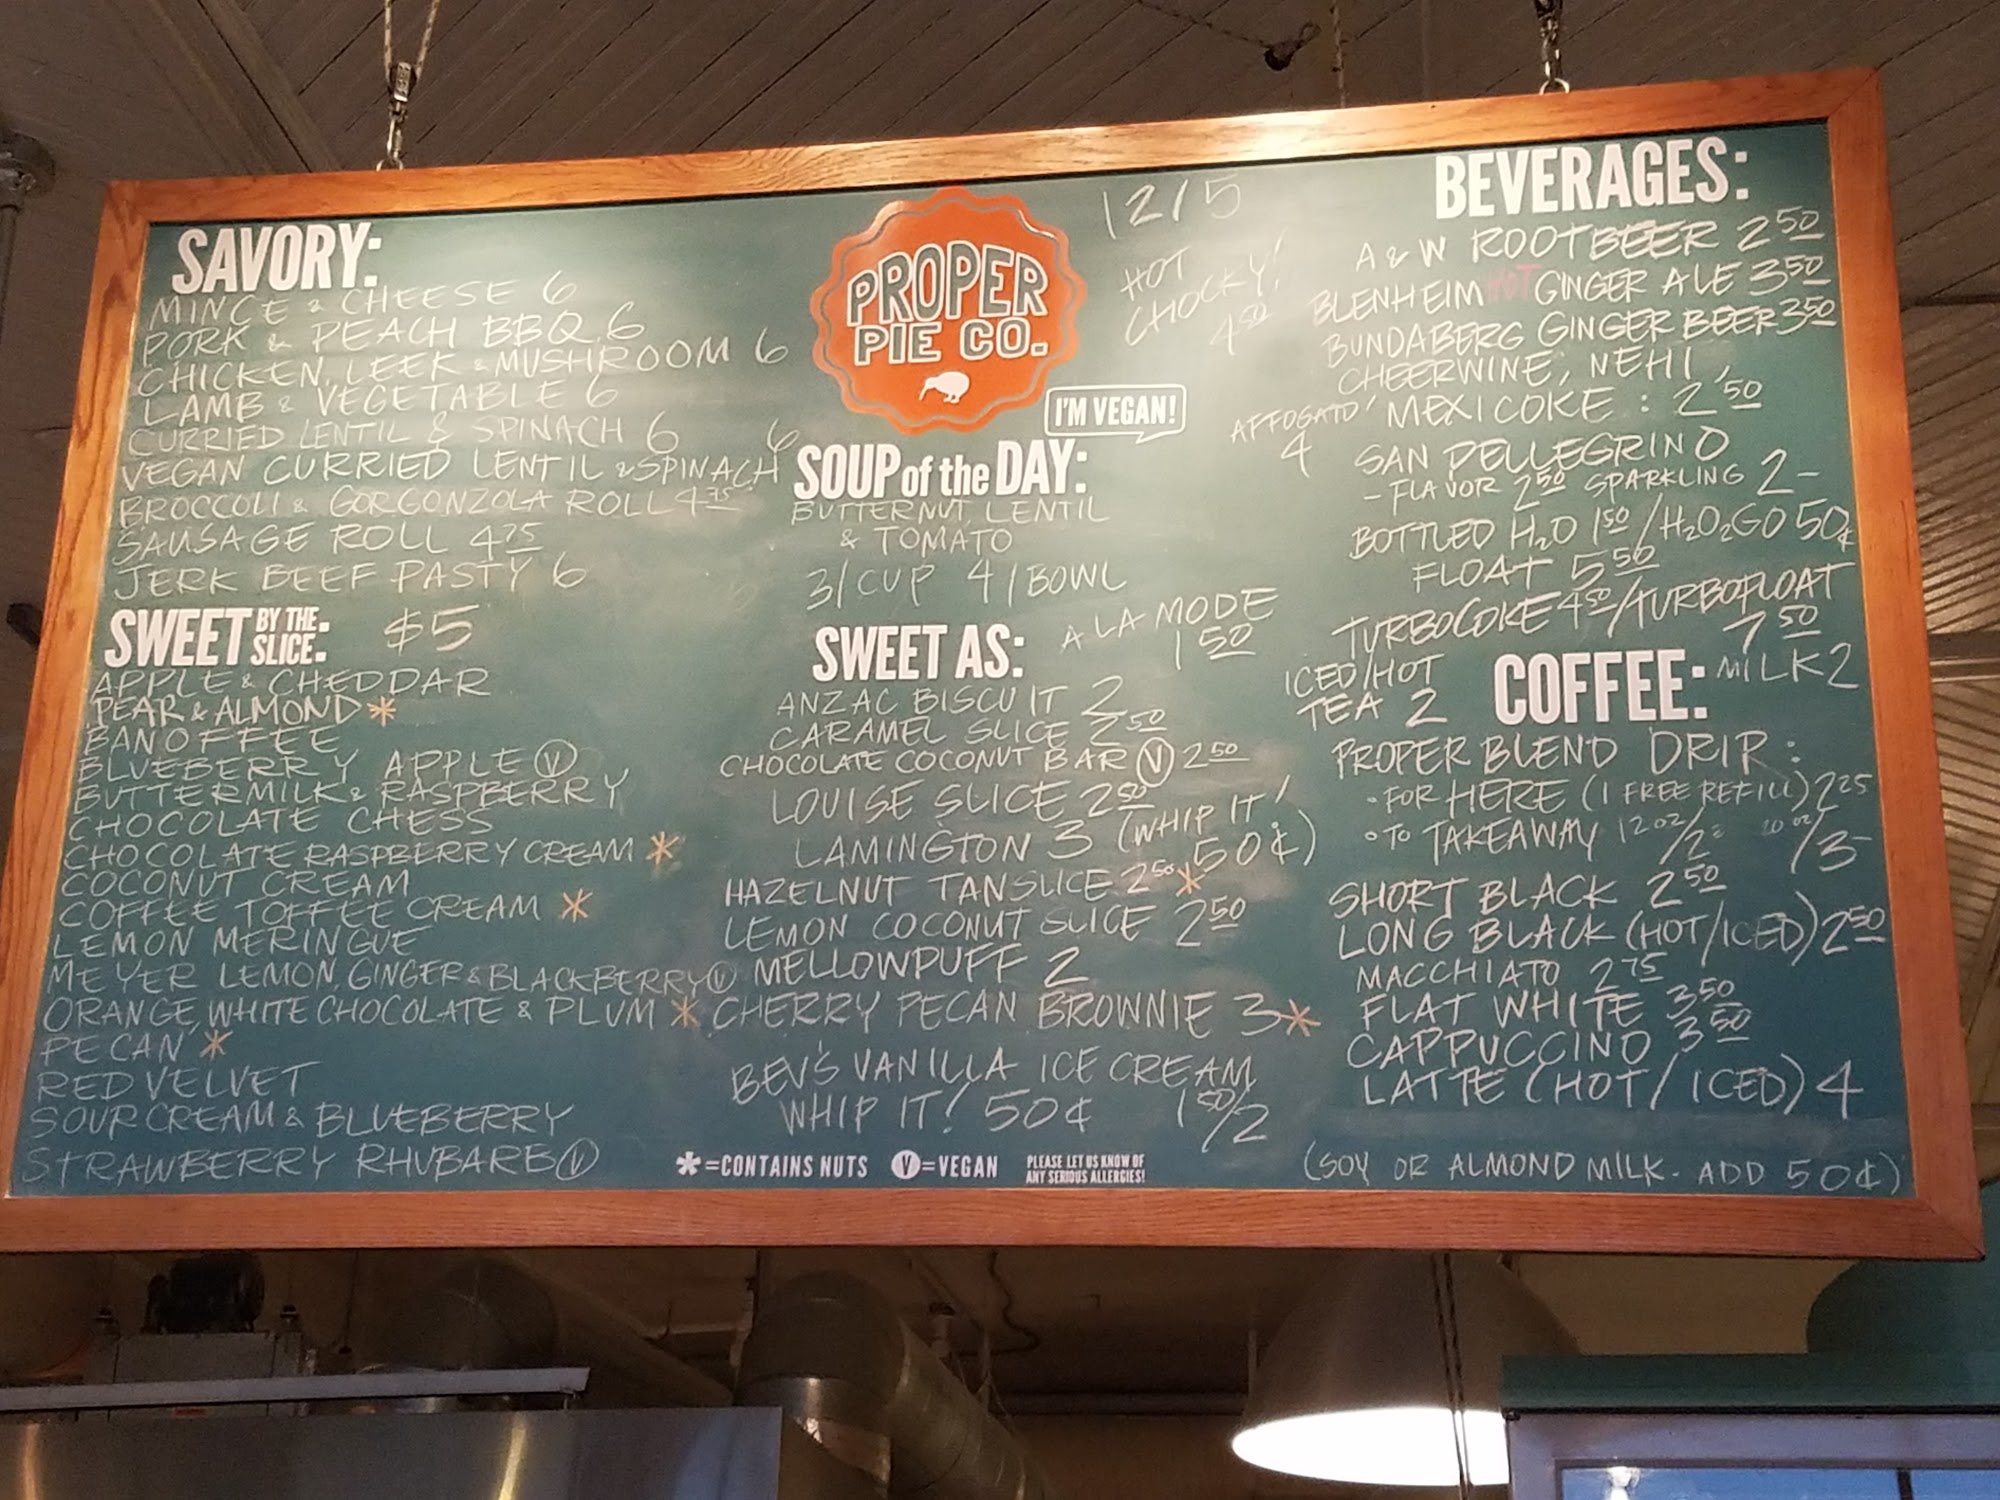 SAVORY:
MINCE & CHEESE 6
PORK & PEACH BBQ 6
CHICKEN, LEEK & MUSHROOM 6
LAMB & VEGETABLE 6
CURRIED LENTIL & SPINACH 6
VEGAN CURRIED LENTIL & SPINACH 6
BROCCOLI & GORGONZOLA ROLL 4.75
SAUSAGE ROLL 4.75
JERK BEEF PASTY 6
SWEET BY THE SLICE: $5
APPLE & CHEDDAR
PEAR & ALMOND *
BANOFFEE
BLUEBERRY APPLE Ⓥ
BUTTERMILK & RASPBERRY
CHOCOLATE CHESS
CHOCOLATE RASPBERRY CREAM *
COCONUT CREAM
COFFEE TOFFEE CREAM *
LEMON MERINGUE
MEYER LEMON, GINGER & BLACKBERRY Ⓥ
ORANGE, WHITE CHOCOLATE & PLUM *
PECAN *
RED VELVET
SOUR CREAM & BLUEBERRY
STRAWBERRY RHUBARB Ⓥ
PROPER
PIE CO.
I'M VEGAN!
12/5
HOT
CHOCKY!
4 50
SOUP of the DAY:
BUTTERNUT, LENTIL
& TOMATO
3/CUP 4/BOWL
SWEET AS:
A LA MODE
1 50
ANZAC BISCUIT 2
CARAMEL SLICE 2 50
CHOCOLATE COCONUT BAR Ⓥ 2 50
LOUISE SLICE 2 50
LAMINGTON 3 (WHIP IT! 50¢)
HAZELNUT TAN SLICE 2 50 *
LEMON COCONUT SLICE 2 50
MELLOWPUFF 2
CHERRY PECAN BROWNIE 3 *
BEV'S VANILLA ICE CREAM 1 50/2
WHIP IT! 50¢
*=CONTAINS NUTS Ⓥ=VEGAN
PLEASE LET US KNOW OF
ANY SERIOUS ALLERGIES!
BEVERAGES:
A & W ROOTBEER 2 50
BLENHEIM HOT GINGER ALE 3 50
BUNDABERG GINGER BEER 3 50
CHEERWINE, NEHI,
MEXICOKE : 2 50
AFFOGATO
4
SAN PELLEGRINO
- FLAVOR 2 50 SPARKLING 2 -
BOTTLED H2O 1 50 / H2O2GO 50¢
FLOAT 5 50
TURBOCOKE 4 50 / TURBOFLOAT
7 50
ICED/HOT
TEA 2
MILK 2
COFFEE:
PROPER BLEND DRIP:
• FOR HERE (1 FREE REFILL) 2 25
• TO TAKEAWAY 12 oz /2 20 oz /3 -
SHORT BLACK 2 50
LONG BLACK (HOT/ICED) 2 50
MACCHIATO 2 75
FLAT WHITE 3 50
CAPPUCCINO 3 50
LATTE (HOT/ICED) 4
(SOY OR ALMOND MILK - ADD 50¢)